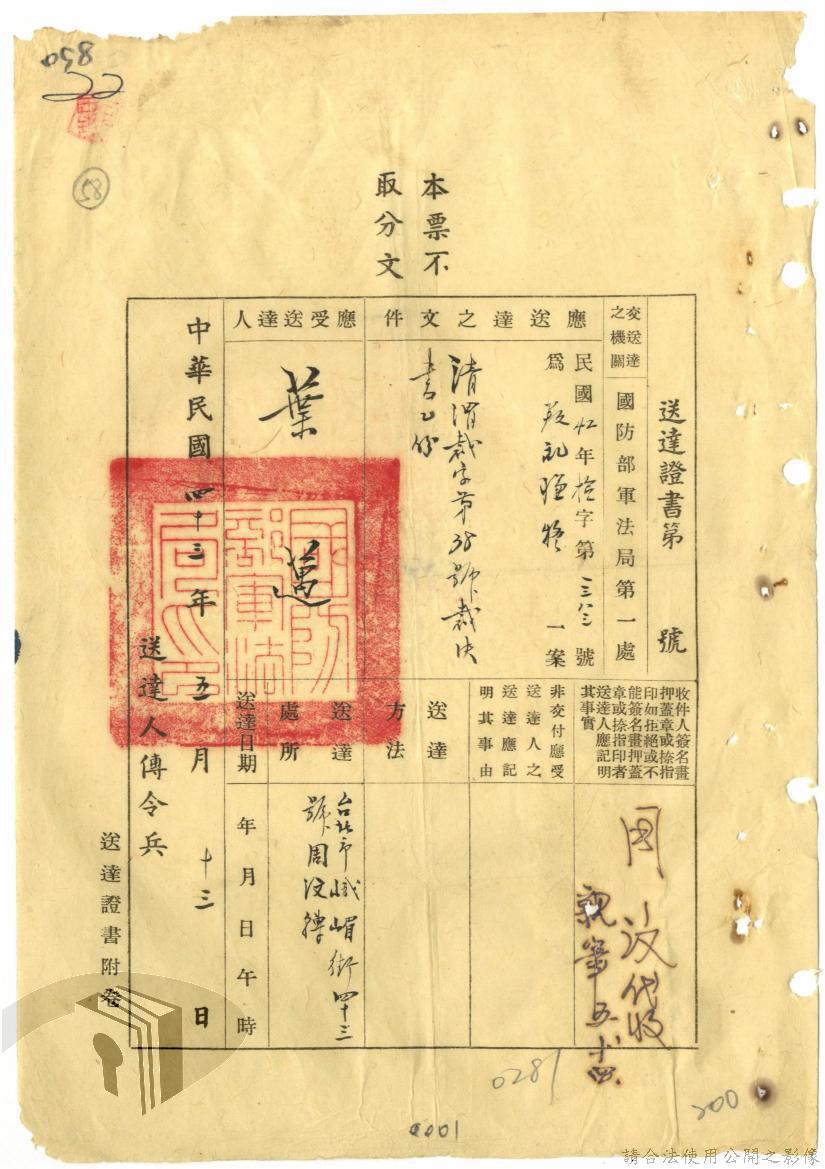 058
58
本票不
取分文
送達證書第 號
交送達之機關
國防部軍法局第一處
應送達之文件
民國 年 字第 三三 號
為 一案
清 裁字第38號裁決
書乙份
應受送達人
葉 邁
中華民國四十三年五月十三日
送達人傳令兵
收件人簽名畫
押蓋章或捺指
印如拒絕或不
能簽名畫押蓋
章或捺指印者
送達人應記明
其事實
周 汶代收
親筆 五
非交付應受
送達人之
送達應記
明其事由
送達方法
送達處所
台北市峨嵋街四十三
號周汶轉
送達日期
年月日午時
送達證書附卷
0281
200
0001
請合法使用公開之影像